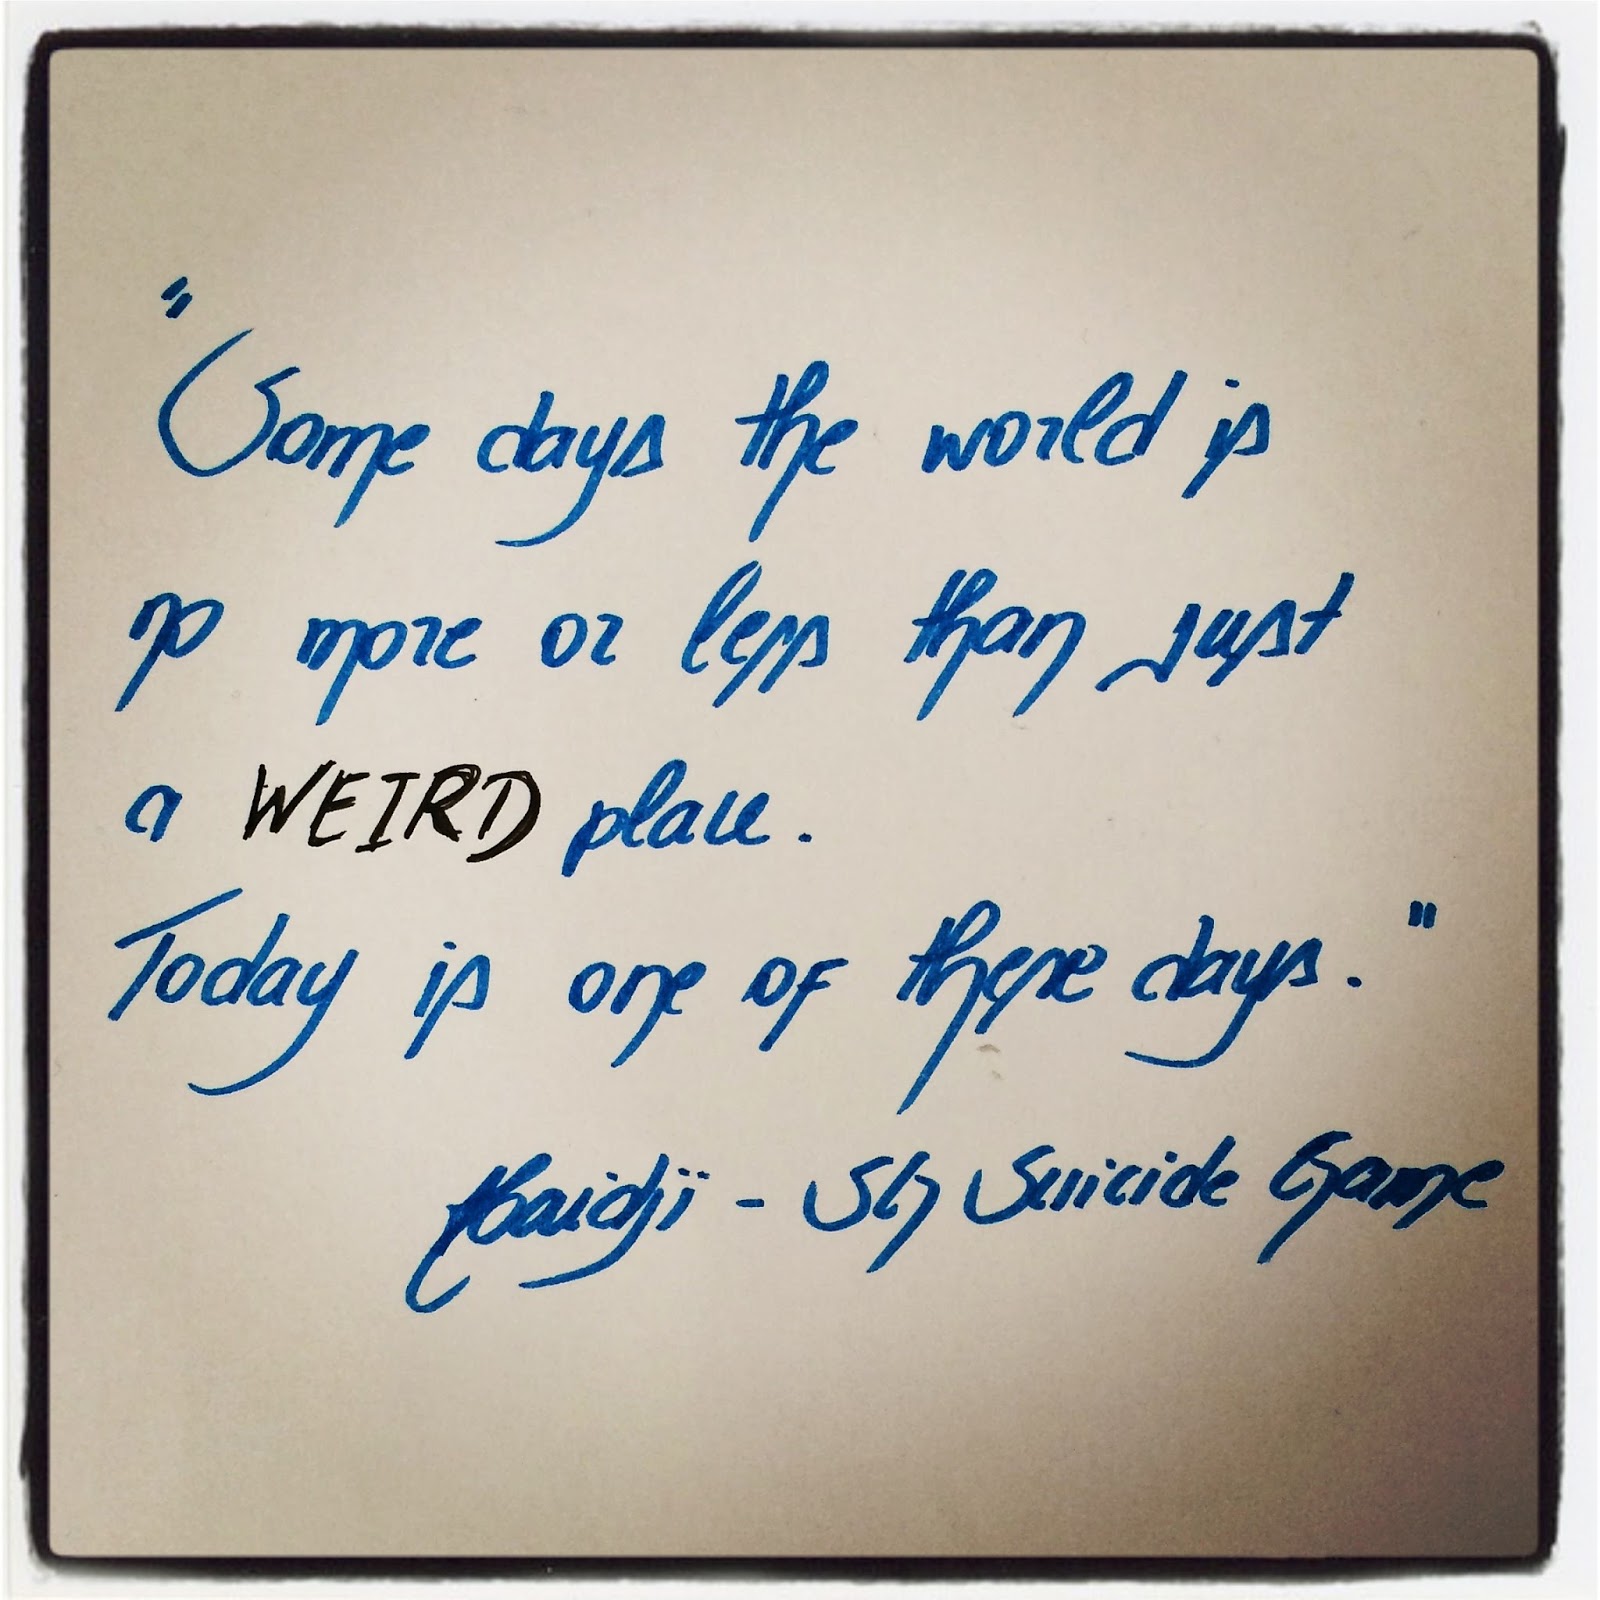 "Some days the world is
no more or less than just
a WEIRD place.
Today is one of these days."
Haidji - SG Suicide Game